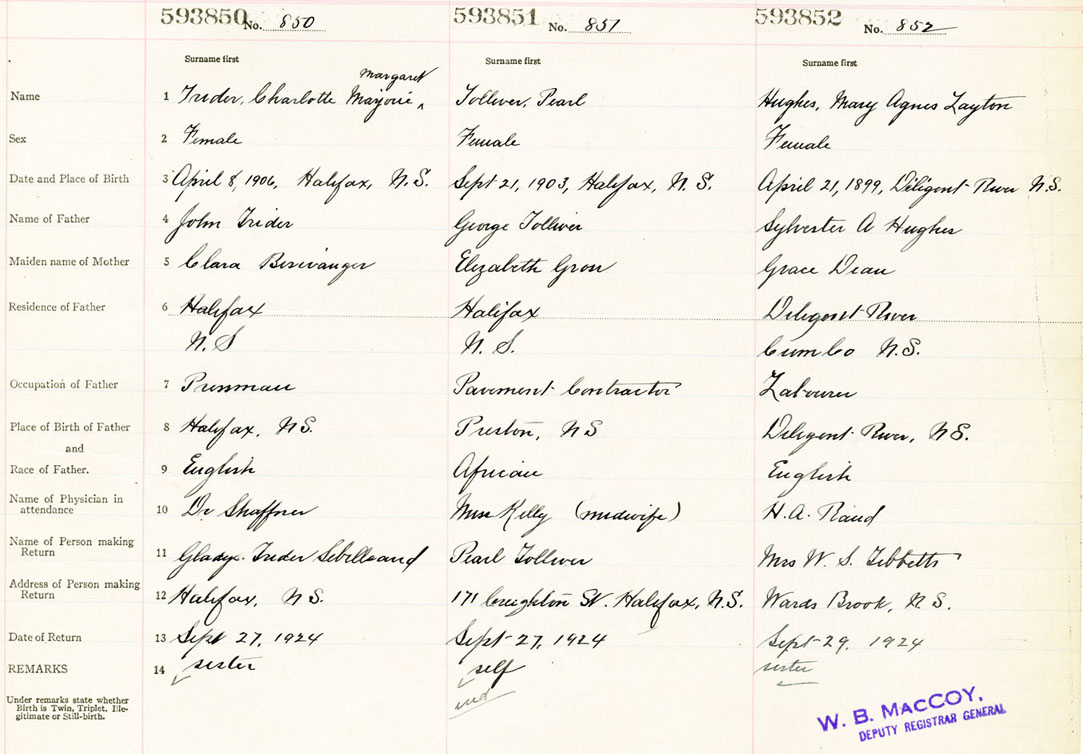 593850 No. 850 593851 No. 851 593852 No. 852
Surname first Surname first Surname first
Margaret
Name 1 Trider, Charlotte Marjorie ^ Tolliver, Pearl Hughes, Mary Agnes Layton
Sex 2 Female Female Female
Date and Place of Birth 3 April 8, 1906, Halifax, N.S. Sept 21, 1903, Halifax, N.S. April 21, 1899, Diligent River N.S.
Name of Father 4 John Trider George Tolliver Sylvester A Hughes
Maiden name of Mother 5 Clara Elizabeth Grace Dean
Residence of Father 6 Halifax Halifax Diligent River
N.S N.S. Cum Co N.S.
Occupation of Father 7 Pressman Pavement Contractor Labourer
Place of Birth of Father 8 Halifax, NS. Preston, NS Diligent River, NS.
and
Race of Father. 9 English African English
Name of Physician in
attendance 10 Dr Shaffner Mrs Kelly (midwife) H.A. Rand
Name of Person making
Return 11 Gladys Trider Pearl Tolliver Mrs W. S. Tibbetts
Address of Person making
Return 12 Halifax, NS. 171 Creighton St. Halifax, N.S. Wards Brook, N.S.
Date of Return 13 Sept 27, 1924 Sept 27, 1924 Sept 29, 1924
REMARKS 14 sister self sister
Under remarks state whether
Birth is Twin, Triplet, Ille-
gitimate or Still-birth.
W. B. MACCOY.
DEPUTY REGISTRAR GENERAL